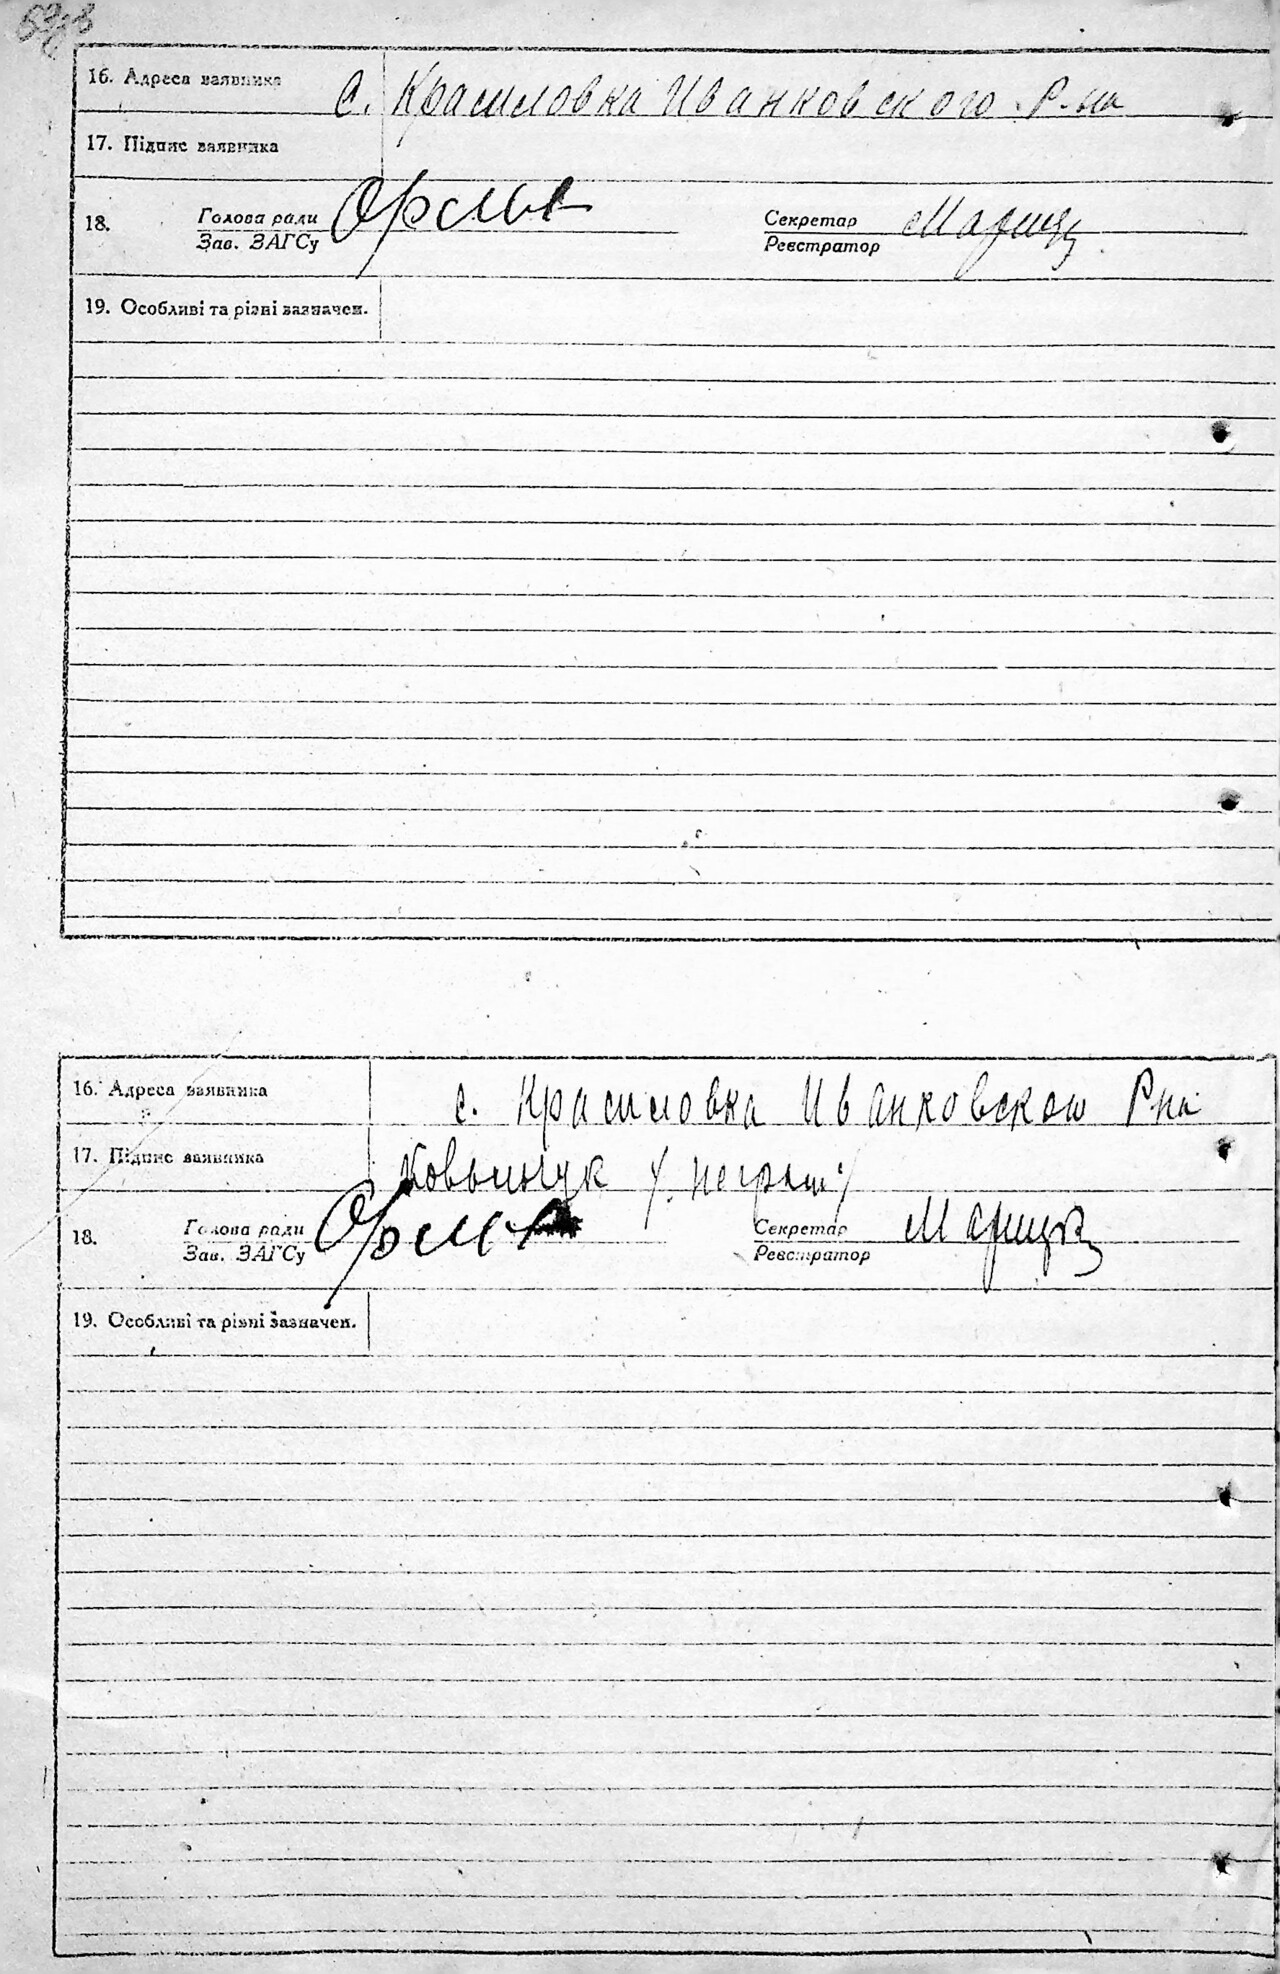 16. Адреса заявника с. Красиловка Иванковского Р-на
17. Підпис заявника
18. Голова ради Секретар
Зав. ЗАГСу Реєстратор
19. Особливі та різні зазначен.
16. Адреса заявника с. Красиловка Иванковского Р-на
17. Підпис заявника
18. Голова ради Секретар
Зав. ЗАГСу Реєстратор
19. Особливі та різні зазначен.